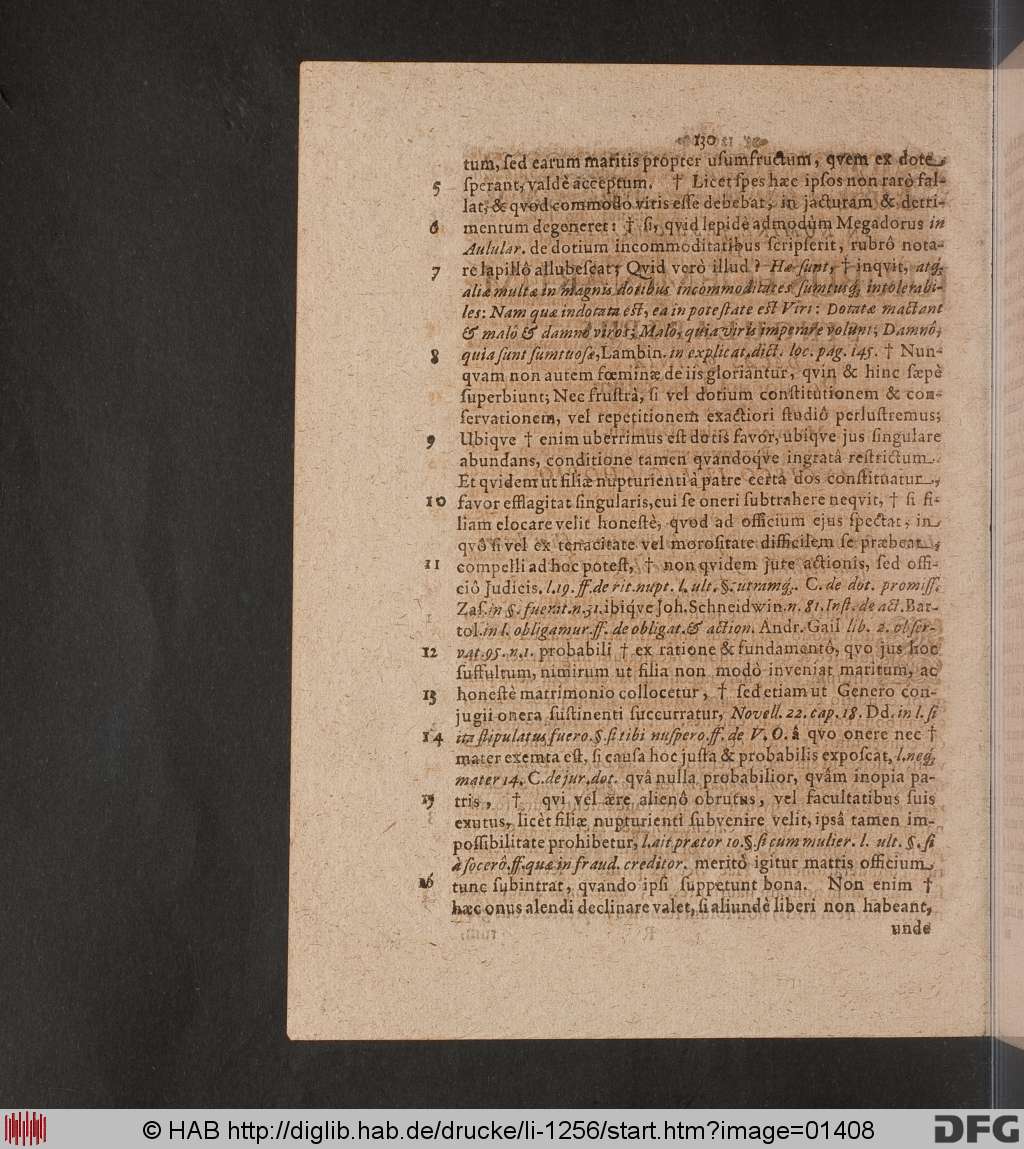 130
tum, ſed earum maritis propter uſumfructum, qvem ex dote
5 ſperant, valdè acceptum. † Licet ſpes hæc ipſos non rarò fal-
lat, & qvod commodo viris eſſe debebat, in jacturam & detri-
6 mentum degeneret: † ſi, qvid lepidè admodùm Megadorus in
Aulular. de dotium incommoditatibus ſcripſerit, rubrô nota-
7 re lapillô allubeſcat; Qvid verò illud? Hæ ſunt, † inqvit, atq;
aliæ multæ in magnis dotibus incommoditates ſumtusq; intolerabi-
les: Nam quæ indotata eſt, ea in poteſtate eſt Viri: Dotatæ mactant
& malô & damnô viros; Malô, quia viris imperare volunt; Damnô,
8 quia ſunt ſumtuoſæ, Lambin. in explicat. dict. loc. pag. 145. † Nun-
qvam non autem fœminæ de iis gloriantur, qvin & hinc ſæpè
ſuperbiunt; Nec fruſtrà, ſi vel dotium conſtitutionem & con-
ſervationem, vel repetitionem exactiori ſtudiô perluſtremus;
9 Ubiqve † enim uberrimus eſt dotis favor, ubiqve jus ſingulare
abundans, conditione tamen qvandoqve ingratâ reſtrictum.
Et qvidem ut filiæ nupturienti à patre certa dos conſtituatur,
10 favor efflagitat ſingularis, cui ſe oneri ſubtrahere neqvit, † ſi fi-
liam elocare velit honeſtè, qvod ad officium ejus ſpectat, in
qvô ſi vel ex tenacitate vel moroſitate difficilem ſe præbeat,
11 compelli ad hoc poteſt, † non qvidem jure actionis, ſed offi-
ciô Judicis. l. 19. ff. de rit. nupt. l. ult. §. utramq;. C. de dot. promiſſ.
Zaſ. in §. fuerat. n. 31. ibiqve Joh. Schneidwin. n. 81. Inſt. de act. Bar-
tol. in l. obligamur. ff. de obligat. & action. Andr. Gail lib. 2. obſer-
12 vat. 95. n. 1. probabili † ex ratione & fundamentô, qvo jus hoc
ſuffultum, nimirum ut filia non modò inveniat maritum, ac
13 honeſtè matrimonio collocetur, † ſed etiam ut Genero con-
jugii onera ſuſtinenti ſuccurratur, Novell. 22. cap. 18. Dd. in l. ſi
14 ita ſtipulatus fuero. §. ſi tibi nupſero. ff. de V. O. â qvo onere nec †
mater exemta eſt, ſi cauſa hoc juſta & probabilis expoſcat, l. neq;
mater 14. C. de jur. dot. qvâ nulla probabilior, qvâm inopia pa-
15 tris, † qvi vel ære alienô obrutus, vel facultatibus ſuis
exutus, licèt filiæ nupturienti ſubvenire velit, ipſâ tamen im-
poſſibilitate prohibetur, l. ait prætor 10. §. ſi cum mulier. l. ult. §. ſi
à ſocerô. ff. quæ in fraud. creditor. meritò igitur matris officium
16 tunc ſubintrat, qvando ipſi ſuppetunt bona. Non enim †
hæc onus alendi declinare valet, ſi aliundè liberi non habeant,
unde
© HAB http://diglib.hab.de/drucke/li-1256/start.htm?image=01408
DFG